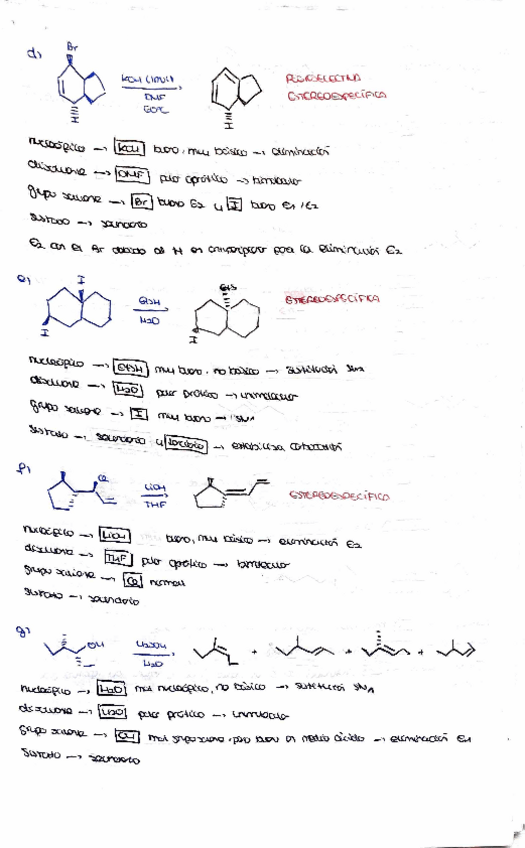 d)
Br
KOH (1 equiv)
DMF
60ºC
I
I
REGIOSELECTIVA
ESTEREOESPECÍFICA
nucleófilo → KOH bueno, muy básico → eliminación
disolvente → DMF polar aprótico → bimolecular
grupo saliente → Br bueno E2 y I bueno E1/E2
sustrato → secundario
E2 con el Br debido al H para la eliminación E2
e)
I
I
EtSH
H2O
EtS
I
ESTEREOESPECÍFICA
nucleófilo → EtSH muy bueno, no básico → sustitución SN1
disolvente → H2O polar prótico → unimolecular
grupo saliente → I muy bueno → SN1
sustrato → secundario y terciario → estabiliza carbocatión
f)
Cl
LiOH
THF
ESTEREOESPECÍFICA
nucleófilo → LiOH bueno, muy básico → eliminación E2
disolvente → THF polar aprótico → bimolecular
grupo saliente → Cl normal
sustrato → secundario
g)
OH
H2SO4
H2O
+ + +
nucleófilo → H2O mal nucleófilo, no básico → sustitución SN1
disolvente → H2O polar prótico → unimolecular
grupo saliente → OH mal grupo saliente, pero bueno en medio ácido → eliminación E1
sustrato → secundario